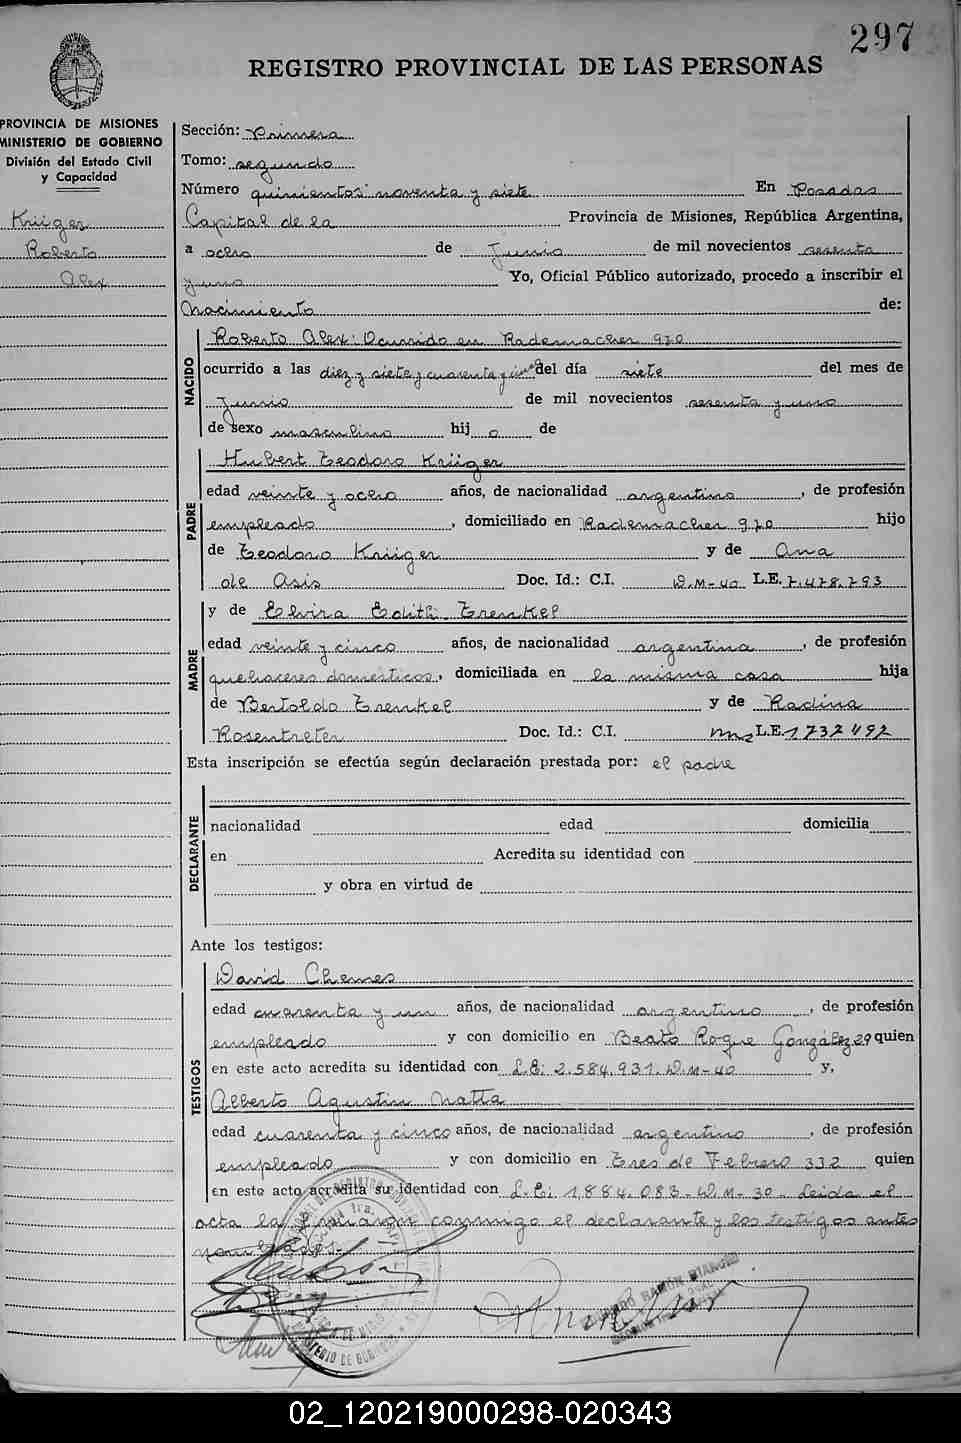 297
REGISTRO PROVINCIAL DE LAS PERSONAS
PROVINCIA DE MISIONES
MINISTERIO DE GOBIERNO
División del Estado Civil
y Capacidad
Krüger
Roberto
Alex
Sección: Primera
Tomo: segundo
Número quinientos noventa y siete En Posadas
Capital de la Provincia de Misiones, República Argentina,
a ocho de Junio de mil novecientos sesenta
y uno Yo, Oficial Público autorizado, procedo a inscribir el
Nacimiento de:
NACIDO
Roberto Alex: Ocurrido en Rademacher 970
ocurrido a las diez y siete y cuarenta y cinco del día siete del mes de
Junio de mil novecientos sesenta y uno
de sexo masculino hijo de
PADRE
Hubert Teodoro Krüger
edad veinte y ocho años, de nacionalidad argentino, de profesión
empleado, domiciliado en Rademacher 970 hijo
de Teodoro Krüger y de Ana
de Asis Doc. Id.: C.I. D.M-40 L.E. 7.478.793
MADRE
y de Elvira Edith Trenkel
edad veinte y cinco años, de nacionalidad argentina, de profesión
quehaceres domesticos, domiciliada en la misma casa hija
de Bertoldo Trenkel y de Radina
Rosentreter Doc. Id.: C.I. L.E. 1732492
Esta inscripción se efectúa según declaración prestada por: el padre
DECLARANTE
nacionalidad edad domicilia
en Acredita su identidad con
y obra en virtud de
Ante los testigos:
TESTIGOS
David Chemes
edad cuarenta y un años, de nacionalidad argentino, de profesión
empleado y con domicilio en Beato Roque González 29 quien
en este acto acredita su identidad con L.E: 2.584.931. D.M-40 y,
Alberto Agustin Matta
edad cuarenta y cinco años, de nacionalidad argentino, de profesión
empleado y con domicilio en Tres de Febrero 332 quien
en este acto acredita su identidad con L.E: 1.884.083-D.M-30- Leida el
acta la firman conmigo el declarante y los testigos antes
nombrados.
02_120219000298-020343